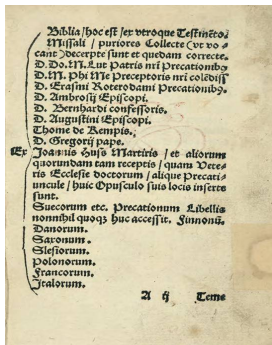 Biblia / hoc est / ex vtroque Testmēto⁊
Missali / puriores Collecte (vt vo⸗
cant) decerpte sunt et quedam correcte.
D. Do. M. Lut Patris nr̄i Precationibꝰ
D. M. Phi Me Preceptoris nri colēdiss̄
D. Erasmi Roterodami Precationibꝰ.
D. Ambrosij Episcopi.
D. Bernhardi confessoris.
D. Augustini Episcopi.
Thome de Kempis.
D. Gregorij pape.
Ex Joannis Huss Martiris / et aliorum
quorundam tam receptis / quam Vete⸗
ris Ecclesie doctorum / alique Precati⸗
uncule / huic Opusculo suis locis inserte
sunt.
Suecorum etc. Precationum Libellis
nonnihil quoqꝫ huc accessit. Finnonū.
Danorum.
Saxonum.
Slesiorum.
Polonorum.
Francorum.
Italorum.
A ij Teme